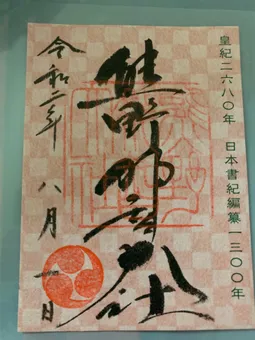 皇紀二六八〇年 日本書紀編纂一三〇〇年
熊野那智大社
令和二年 八月 一日